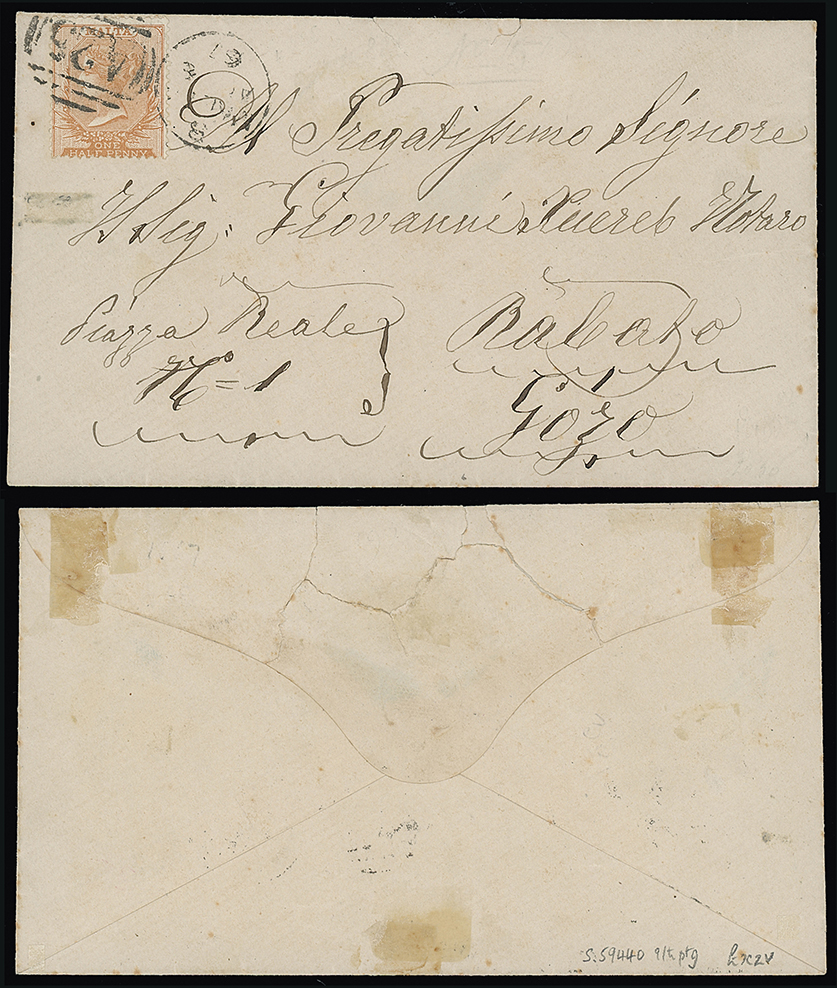 MALTA
A25
ONE
HALF PENNY
Al Pregatissimo Signore
Il Sig: Giovanni Xuereb Notaro
Piazza Reale
No = 1
Rabato
Gozo
S:59440 9/th ptg